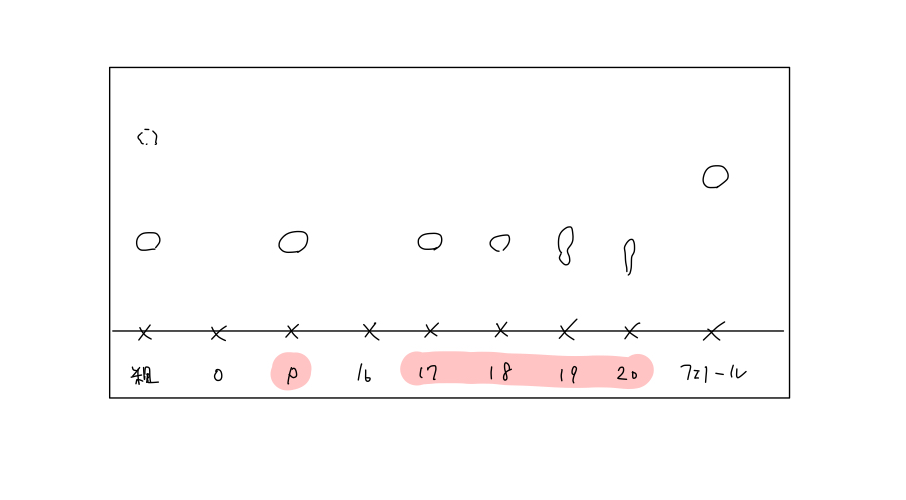 粗 0 P 16 17 18 19 20 フェノール